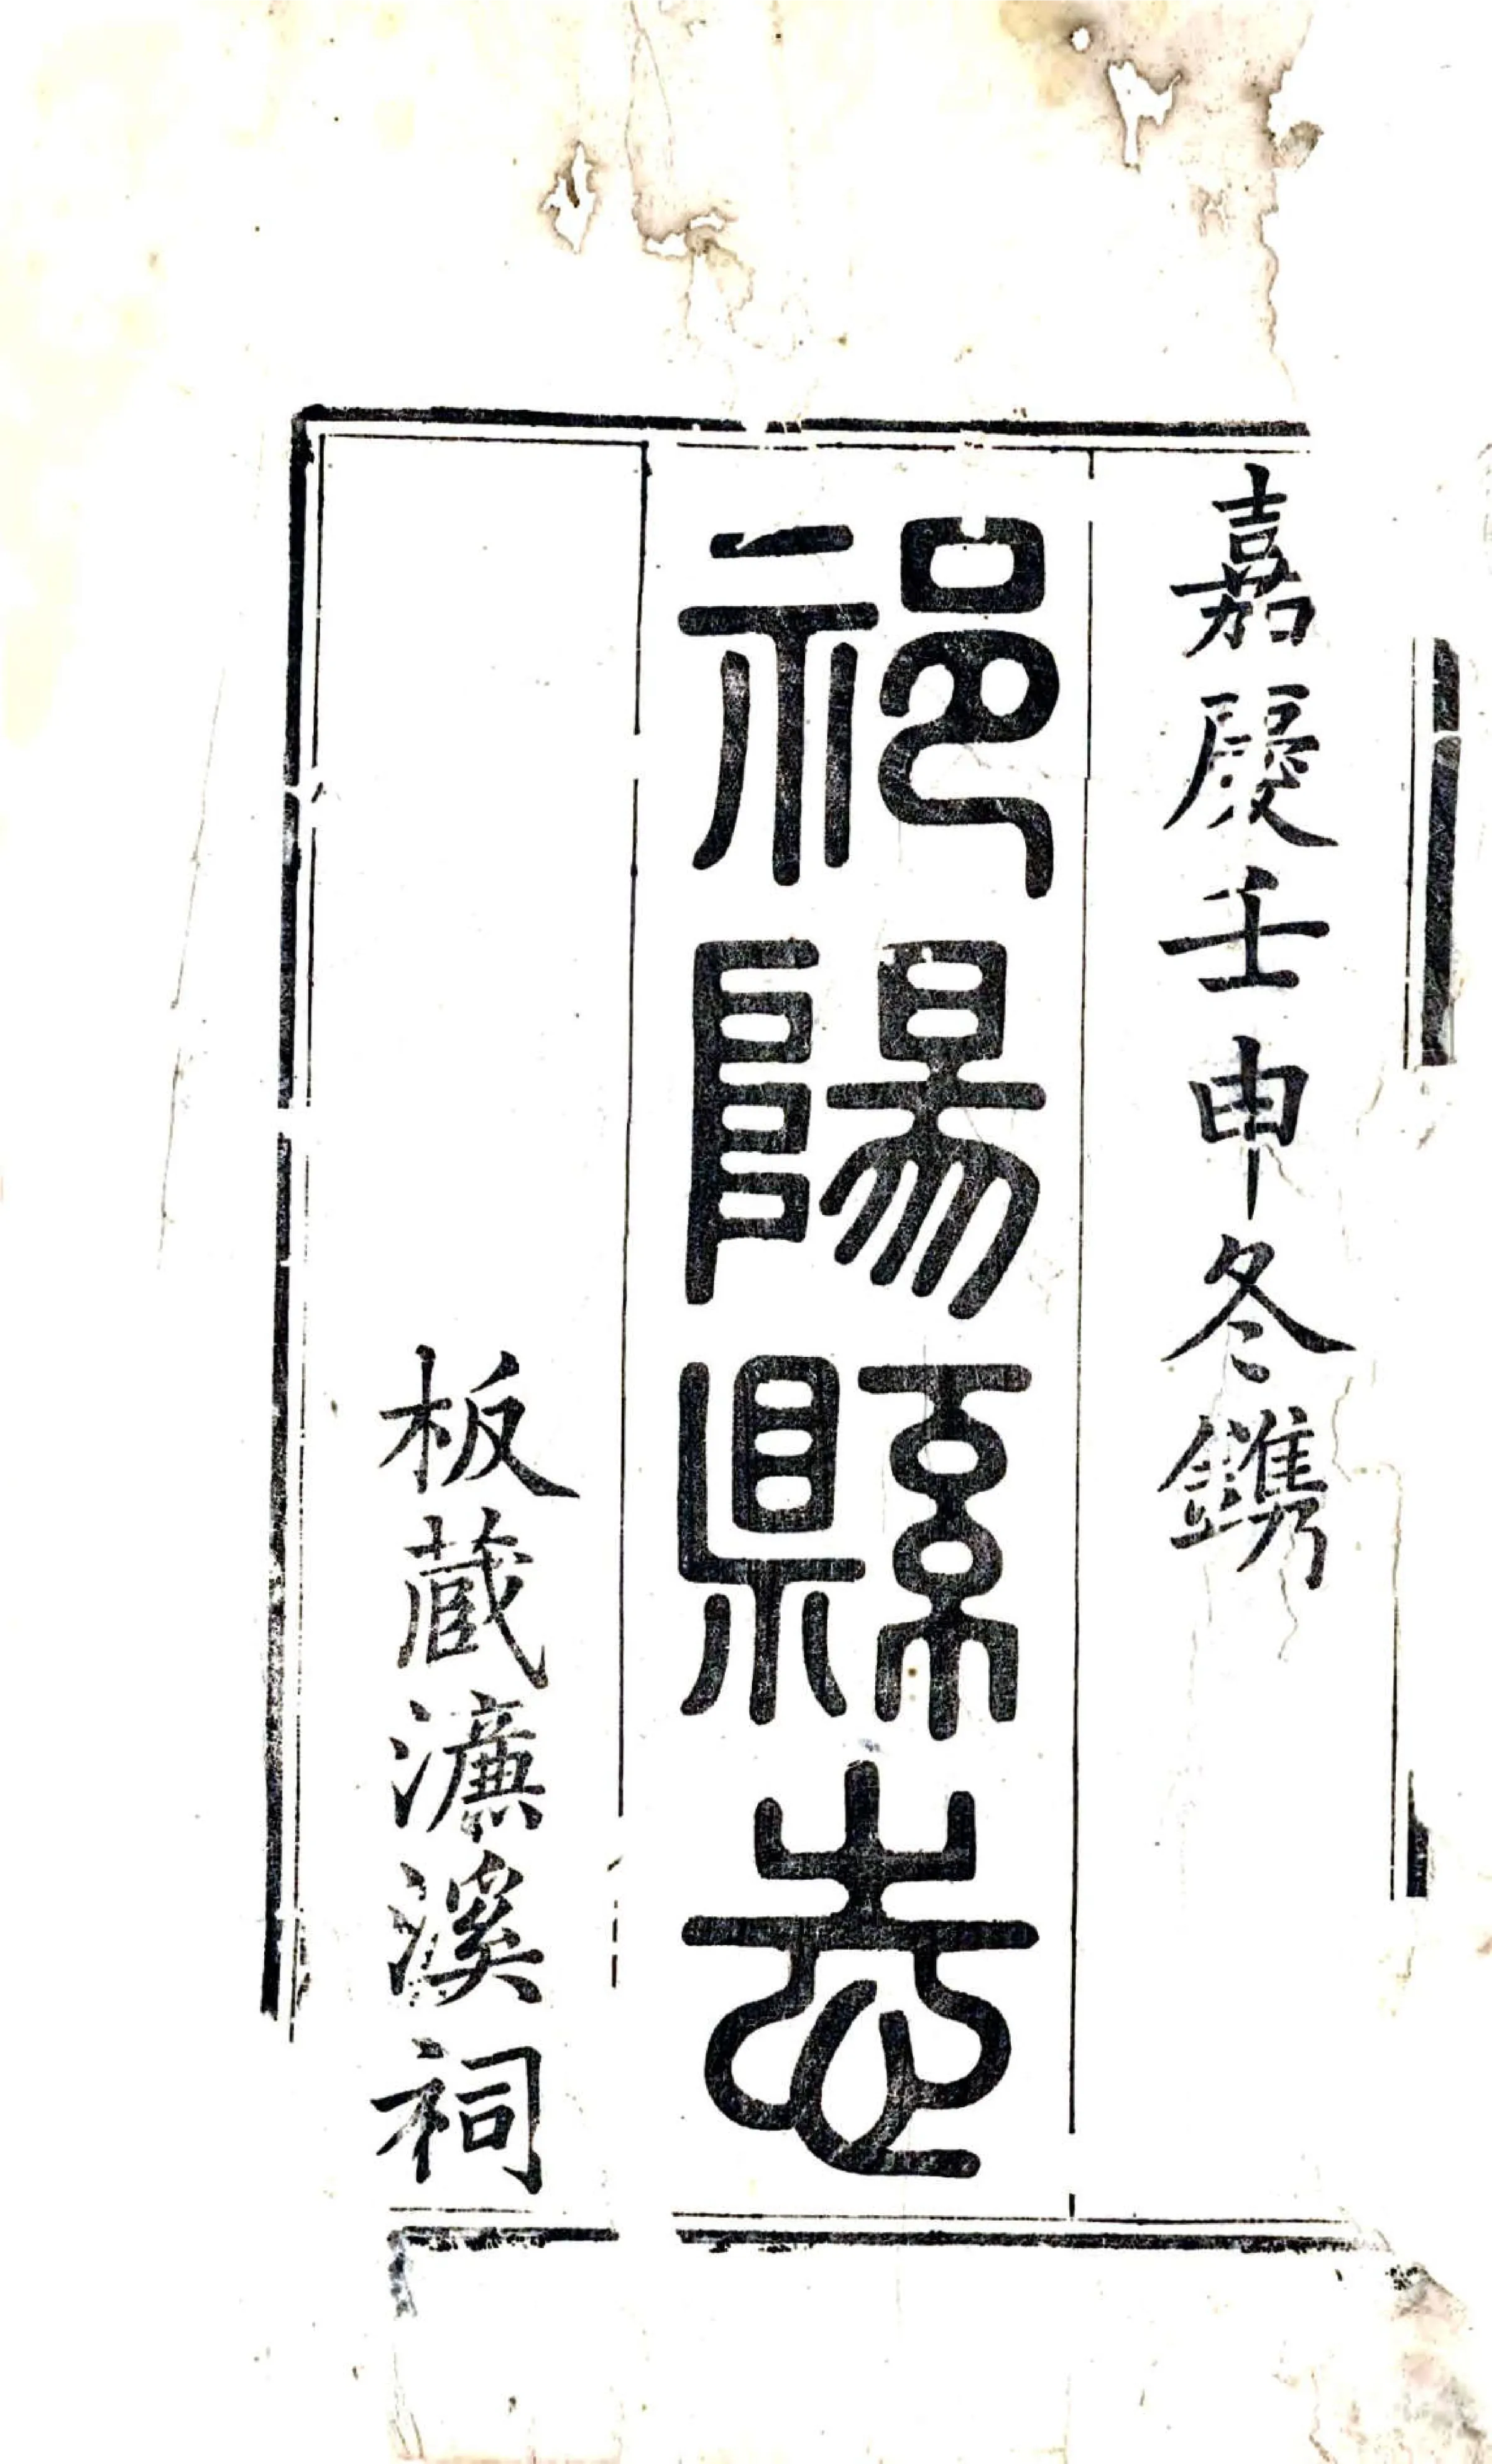 嘉慶壬申冬鐫
祁陽縣志
板蔵濂溪祠